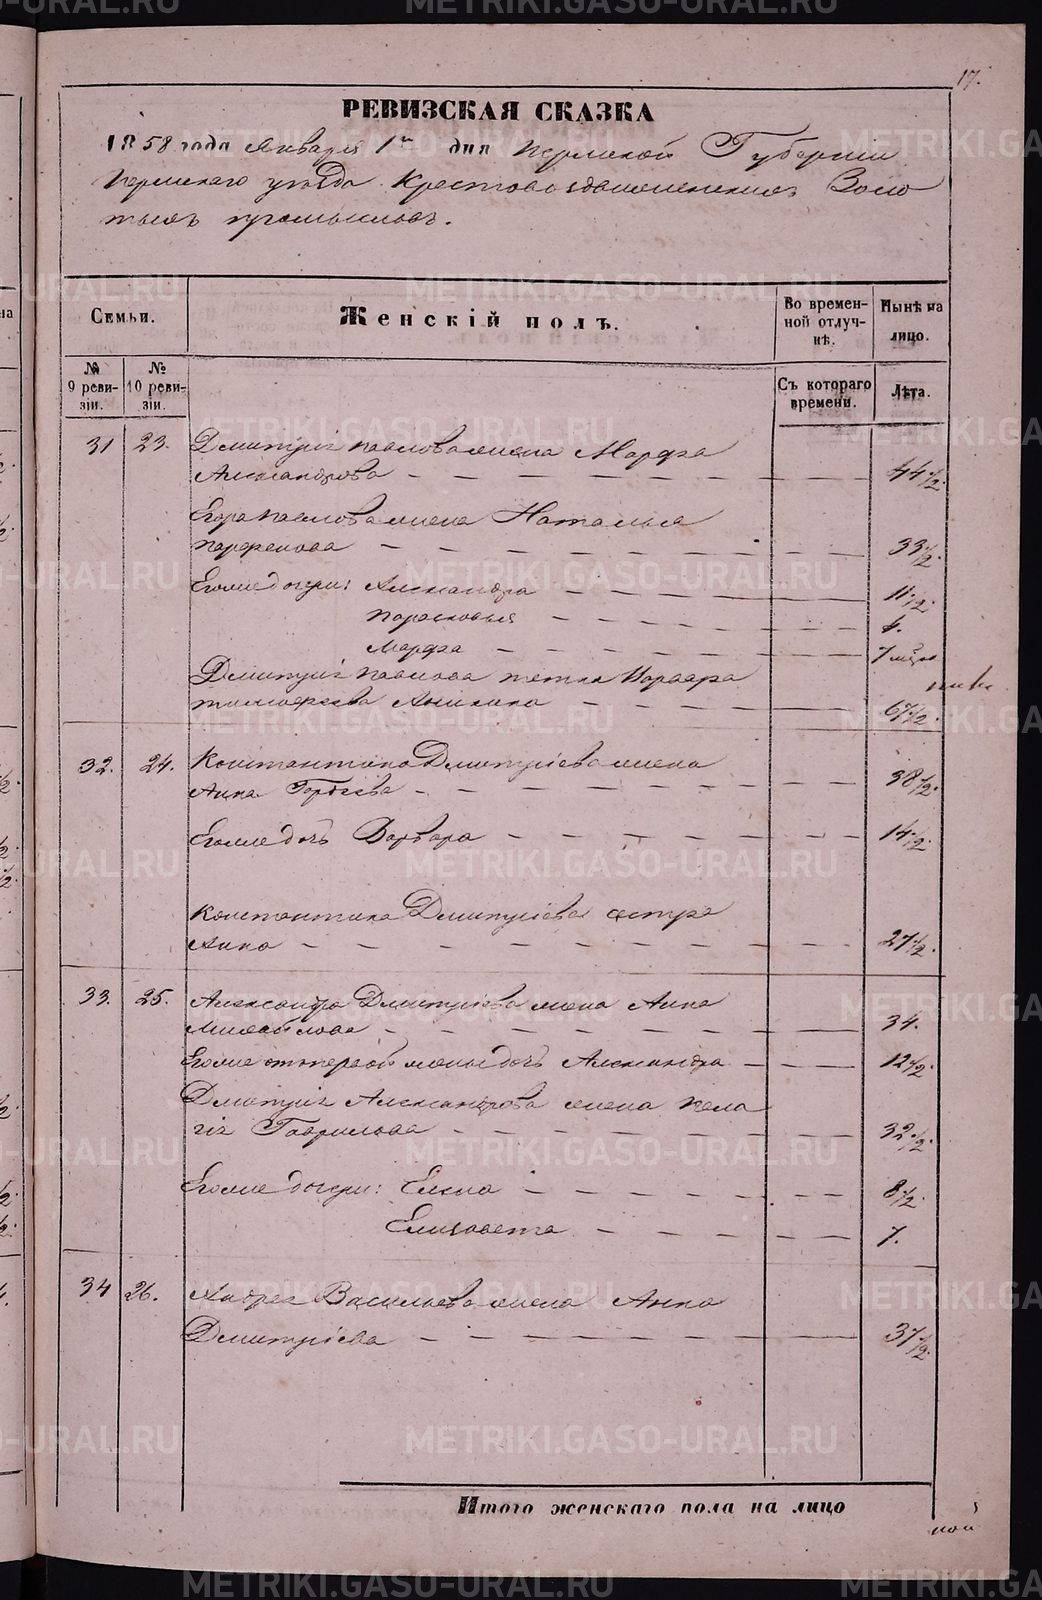 17.
РЕВИЗСКАЯ СКАЗКА
1858 года Января 1го дня Пермской Губерніи
Пермскаго уѣзда Крестовоздвиженскихъ Золо
тыхъ промысловъ.
Семьи.
Женскій полъ.
Во времен-
ной отлуч-
кѣ.
Нынѣ на
лицо.
№
9 реви-
зіи.
№
10 реви-
зіи.
Съ котораго
времени.
Лѣта.
31 23. Дмитрія Павлова жена Марфа
Александрова 44 1/2.
Егора Павлова жена Наталья
Парфенова 33 1/2.
Егоже дочери: Александра 11 1/2.
Парасковья
Марфа 7 мѣся
Дмитрія Павлова тетка Варвара
Тимофеева Аникина 67 1/2.
32. 24. Константина Дмитріева жена
Анна Гордѣева 38 1/2.
Егоже дочь Варвара 14 1/2.
Константина Дмитріева сестра
Анна 27 1/2.
33. 25. Александра Дмитріева жена Анна
Михайлова 34.
Егоже отъ первой жены дочь Александра 12 1/2.
Дмитрія Александрова жена Пела
гія Гаврилова 32 1/2.
Егоже дочери: Елена 8 1/2.
Елизавета 7.
34 26. Андрея Васильева жена Анна
Дмитріева 37 1/2.
Итого женскаго пола на лицо
METRIKI.GASO-URAL.RU